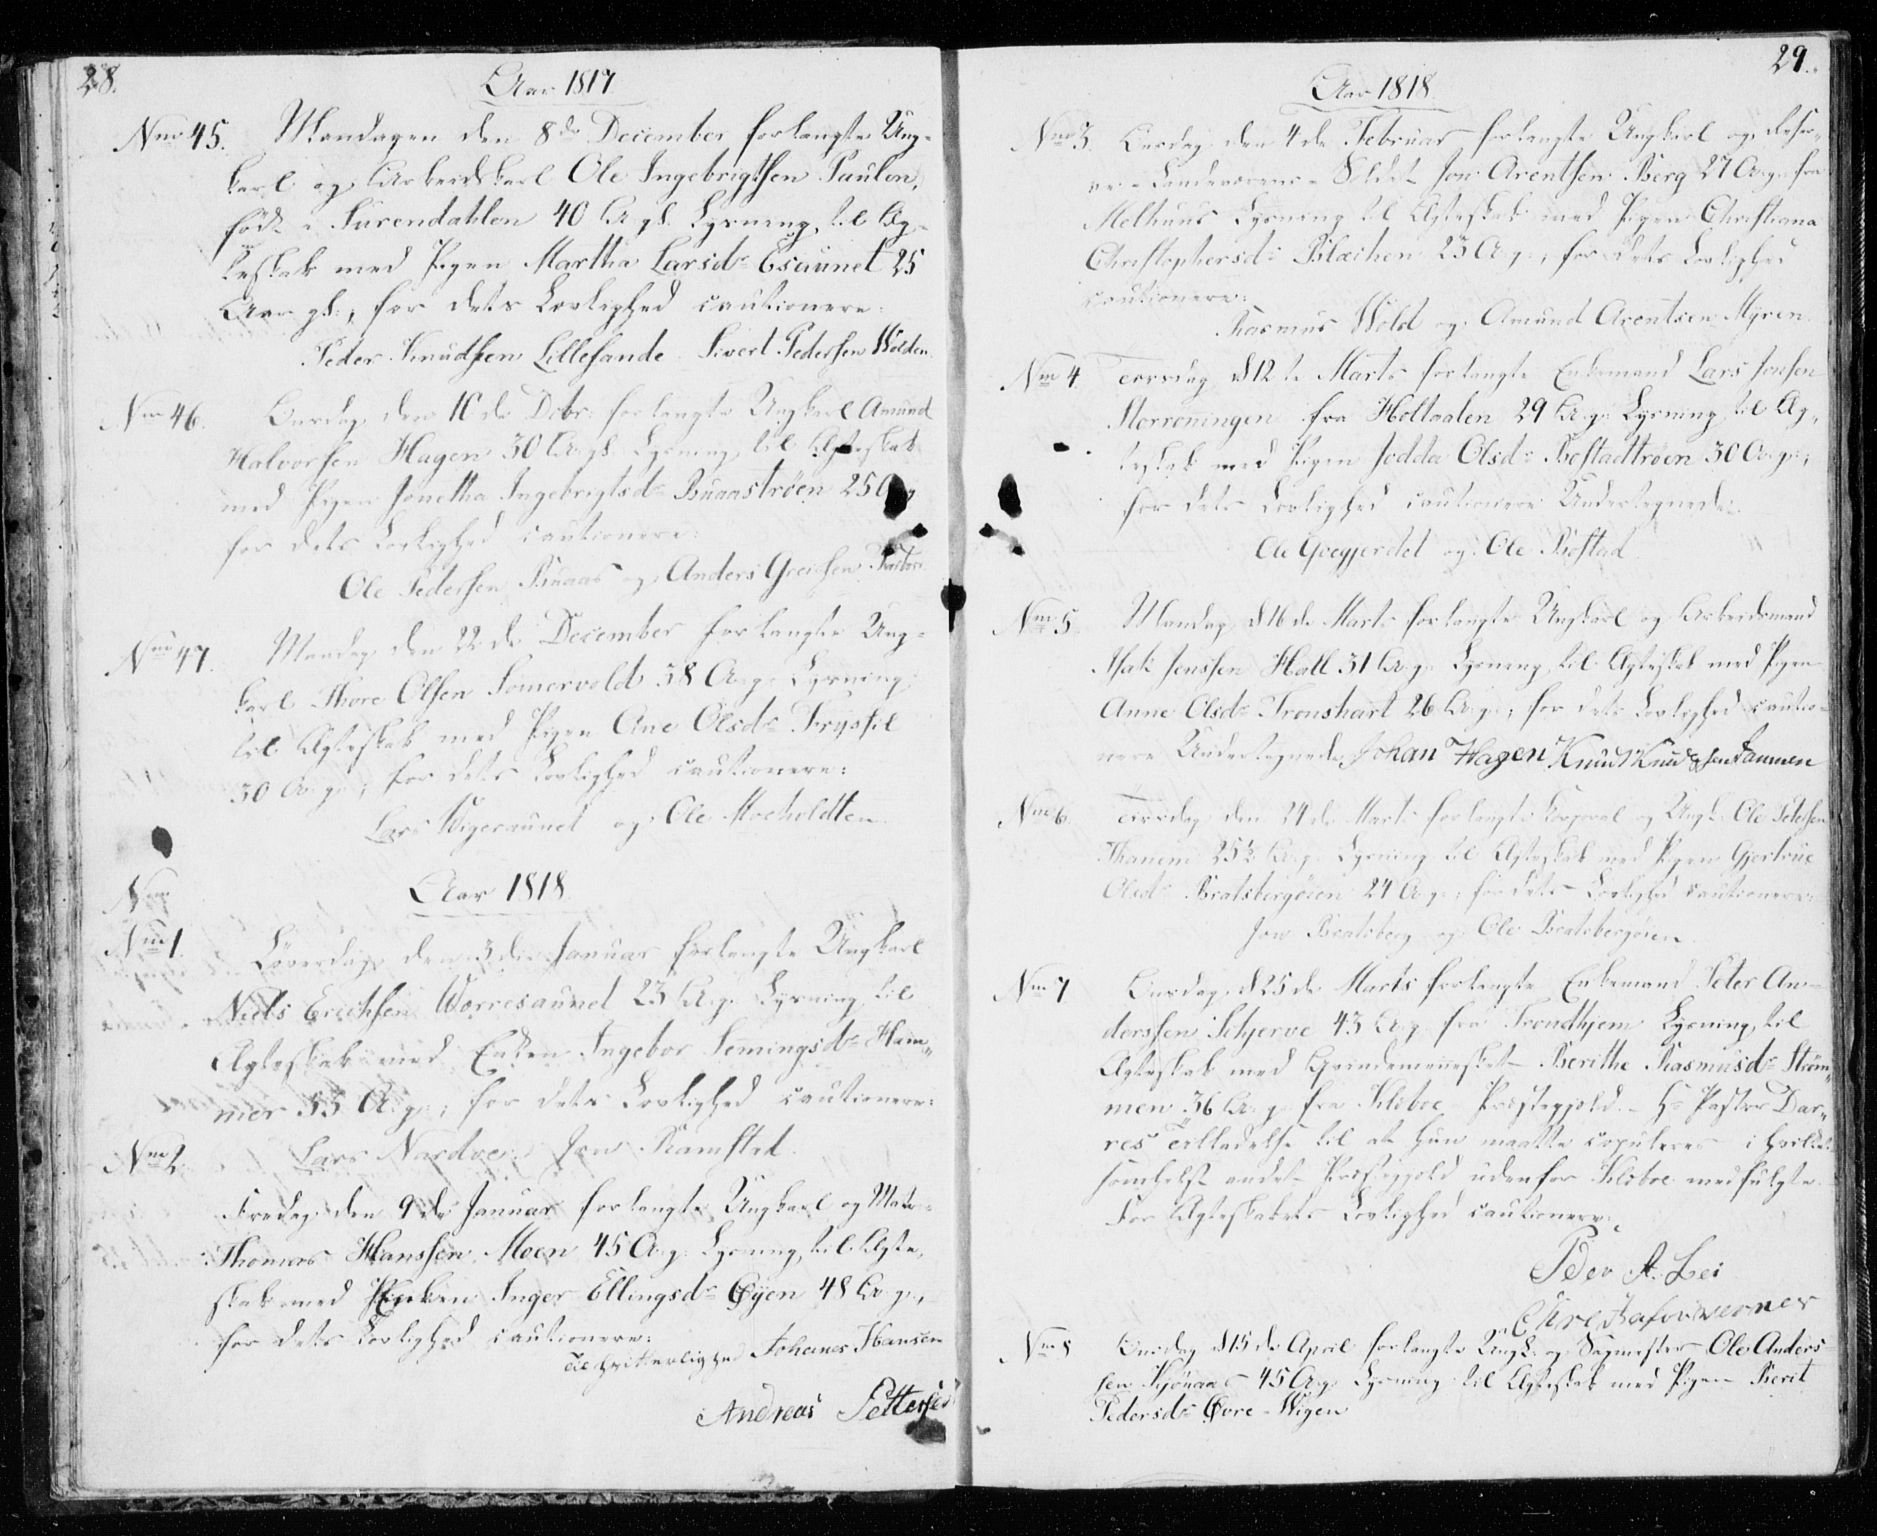 28.
Aar 1817
Nro 45. Mandagen den 8de December forlangte Ung-
karl og Arbeidskarl Ole Ingebrigtsen Paulen,
født i Surendahlen 40 Aar gl. Lysning til Æg-
teskab med Pigen Martha Larsdr Esaunet 25
Aar gl:, for dets Lovlighed cautionere:
Peder Knudsen Lillesande Sivert Pedersen Wolden.
Nro 46. Onsdag den 10de Dcbr: forlangte Ungkarl Amund
Halvorsen Hagen 30 Aar gl. Lysning til Ægteskab
med Pigen Jonetha Ingebrigtsdr Buaastrøen 25 A. g
for dets Lovlighed cautionere:
Ole Pedersen Buaas og Anders Greisen
Nro 47. Mandag den 22de December forlangte Ung-
karl Thore Olsen Somervold 38 A. g. Lysning
til Ægteskab med Pigen Ane Olsdr Trysfil
30 A. g. ; for dets Lovlighed cautionere:
Lars Wigeraunet og Ole Moeholdten.
Nro
Aar 1818.
Nro 1. Løverdag den 3die Januar forlangte Ungkarl
Niels Erichsen Worresaunet 23 A. g. Lysning til
Ægteskab med Enken Ingebor Semingsdr Ham-
mer 53 A. g. ; for dets Lovlighed cautionere:
Lars Nardoe. Jon Ramstad.
Nro 2. Fredag den 9de Januar forlangte Ungkarl og
Thomas Hanssen Moen 45 A. g. Lysning til Ægte-
skab med Enken Inger Ellingsdr Øyen 48 A. g.,
for dets Lovlighed cautionere:
til vitterlighed Johanes Hansen
Andreas Pettersen
29.
Aar 1818.
Nro 3. Onsdag den 4de Februar forlangte Ungkarl og
Landeværens-Soldat Jon Arentsen Berg 27 A. g. fra
Melhuus Lysning til Ægteskab med Pigen Christiana
Christophersdr Blæchen 23 A. g., for dets Lovlighed
cautionere:
Rasmus Wold og Amund Arentsen Myren.
Nro 4. d 12te Marts forlangte Enkemand Lars Jonsen
Storroningen fra Holtaalen 29 A. g. Lysning til Æg-
teskab med Pigen Jodda Olsdr Bostadtrøen 30 A. g.;
for dets Lovlighed cautionere Undertegnede:
Ole Gregjerdet og Ole Bostad.
Nro 5. Mandag d 16de Marts forlangte Ungkarl og Arbeidsmand
Isak Jenssen Hall 31 A. g. Lysning til Ægteskab med Pigen
Anne Olsdr Tronshart 26 A. g., for dets Lovlighed cautio-
nere Undertegnede Johan Hagen Knud Knudsen
Nro 6. Tirsdag den 24de Marts forlangte Korporal og Ungk. Ole Petersen
Thanem 25½ A. g. Lysning til Ægteskab med Pigen Gjertrue
Olsdr Bratsbergøien 24 A. g. ; for dets Lovlighed cautionere:
Jon Bratsberg og Ole Bratsbergøien.
Nro 7 Onsdag d 25de Marts forlangte Enkemand Peter An-
derssen Schjerve 43 A. g. fra Trondhjem Lysning til
Ægteskab med Qvindemennesket Berithe Rasmusdr Strøm-
men 36 A. g. fra Klæboe Præstegjeld. Hr Pastor Dar-
res Tilladelse til at hun maatte copuleres i hvilket-
somhelst andet Præstegjeld udenfor Klæboe medfulgte.
For Ægteskabets Lovlighed cautionere:
Peder A. Lei
Nro 8 Onsdag d 15de April forlangte Ungk. og Sagmester Ole Anders
sen 45 A. g. Lysning til Ægteskab med Pigen Berit
Pedersdr Øvre-Wigen